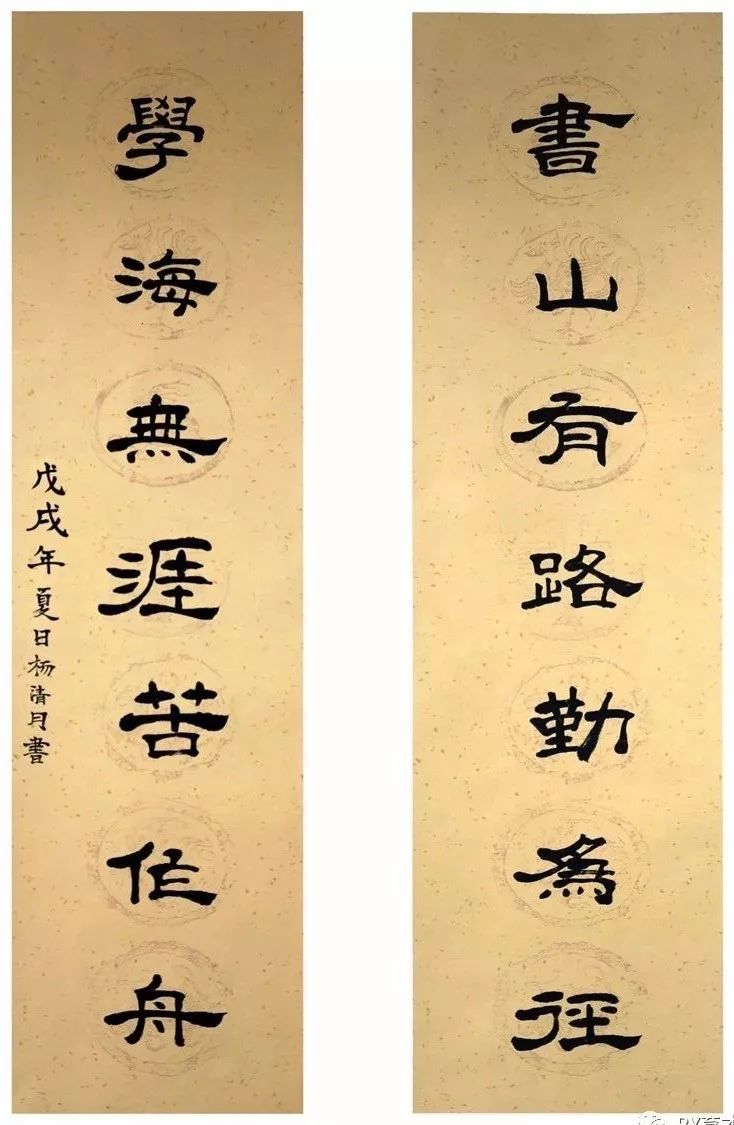 書山有路勤為徑
學海無涯苦作舟
戊戌年夏日杨清月書